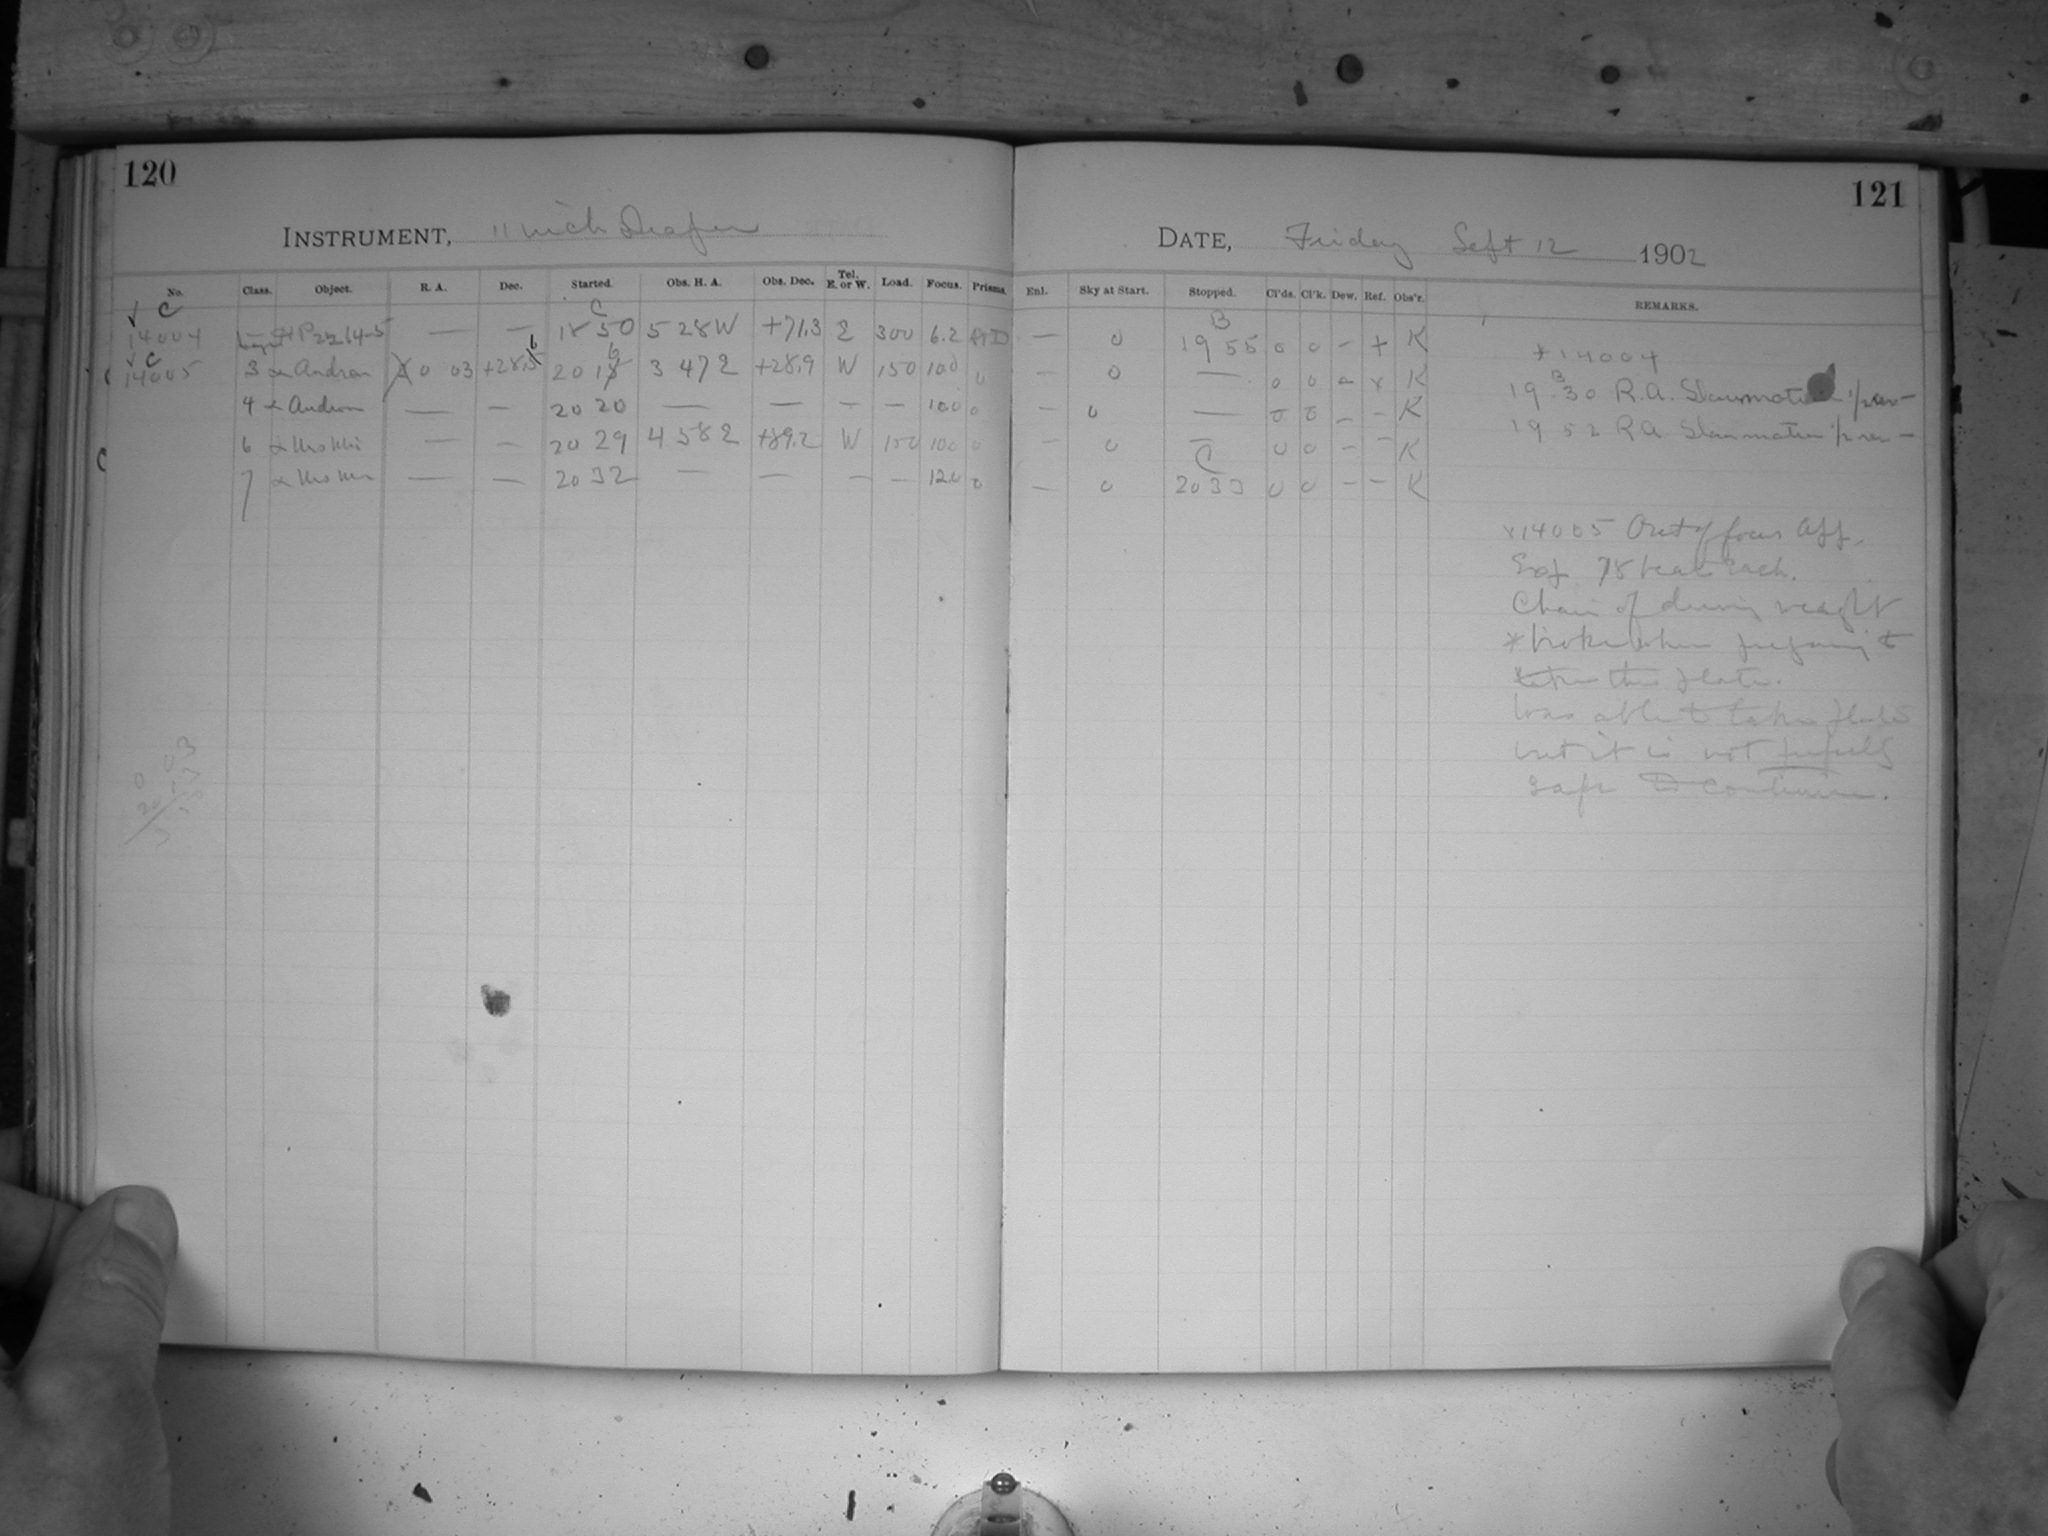 120
INSTRUMENT, 11 inch Draper
No. Class. Object. R. A. Dec. Started. Obs. H. A. Obs. Dec. Tel. E. or W. Load. Focus. Prisms.
√ C C
14004 — — 18 50 5 28 W +71.3 E 300 6.2
√ C
14005 3 α Androm 0 03 +28.5 6 20 18 6 3 47 E +28.9 W 150 10.0 0
4 α Androm — — 20 20 — — — — 10.0 0
C 6 — — 20 29 4 58 E +89.2 W 150 10.0 0
7 — — 20 32 — — — — 12.0 0
0 03
20 17
121
DATE, Friday Sept 12 1902
Enl. Sky at Start. Stopped. Cl'ds. Cl'k. Dew. Ref. Obs'r. REMARKS.
B
— 0 19 55 0 0 — + K
— 0 — 0 0 — x K
— 0 — 0 0 — — K
— 0 — 0 0 — — K
C
— 0 20 33 0 0 — — K
* 14004
B
19 30 R.A. Slow motion
19 52 R.A. Slow motion
x 14005 Out of focus
Exp. each.
Chain of driving weight
* broke when preparing to
take this plate.
Was able to take plate
but it is not perfectly
safe to continue.